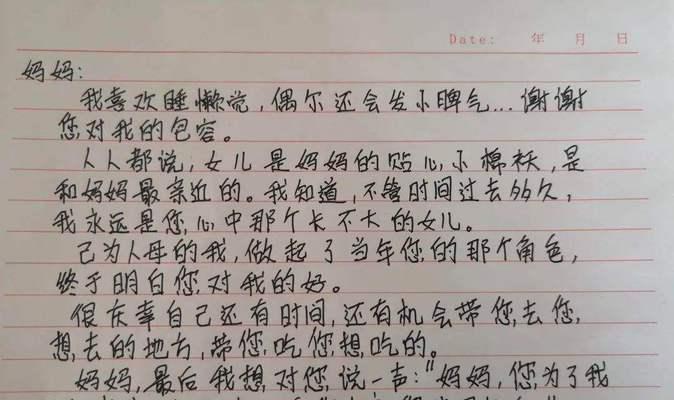 Date: 年 月 日
妈妈:
我喜欢睡懒觉,偶尔还会发小脾气...谢谢
您对我的包容。
人人都说,女儿是妈妈的贴心小棉袄,是
和妈妈最亲近的。我知道,不管时间过去多久,
我永远是您心中那个长不大的女儿。
已为人母的我,做起了当年您的那个角色,
终于明白您对我的好。
很庆幸自己还有时间,还有机会带您去您
想去的地方,带您吃您想吃的。
妈妈,最后我想对您说一声:“妈妈,您为了我